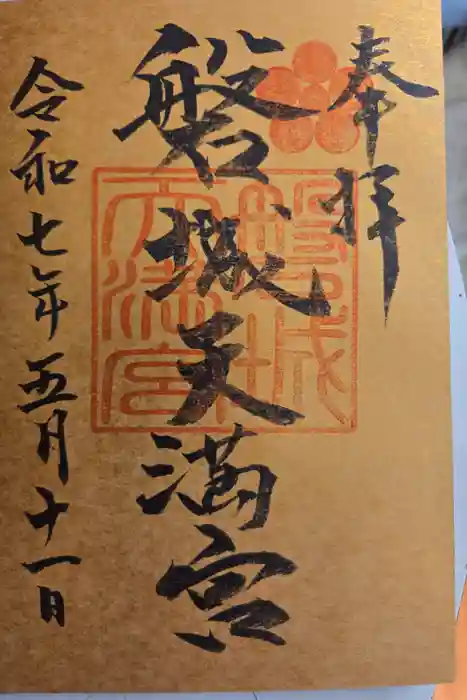 奉拝
磐城天満宮
磐城
天満宮
令和七年五月十一日